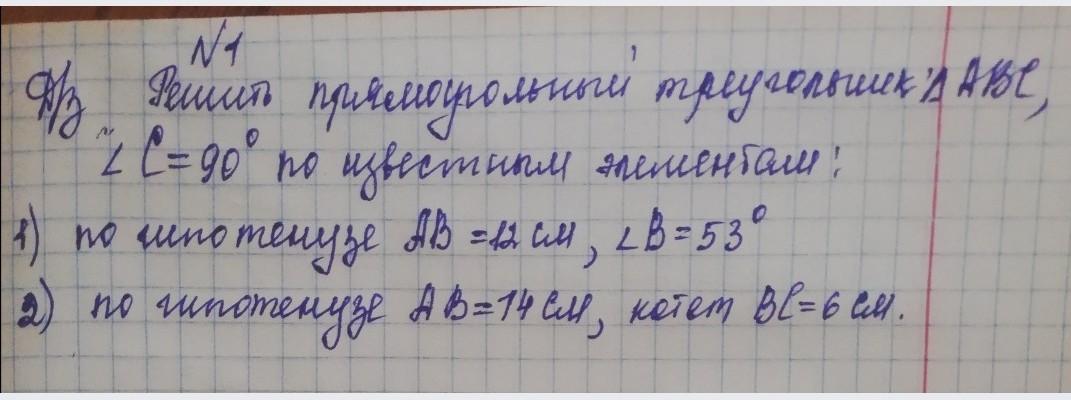 №1
Д/з Решить прямоугольный треугольник Δ ABC,
∠ C = 90° по известным элементам:
1) по гипотенузе AB = 12 см, ∠B = 53°
2) по гипотенузе AB = 14 см, катет BC = 6 см.